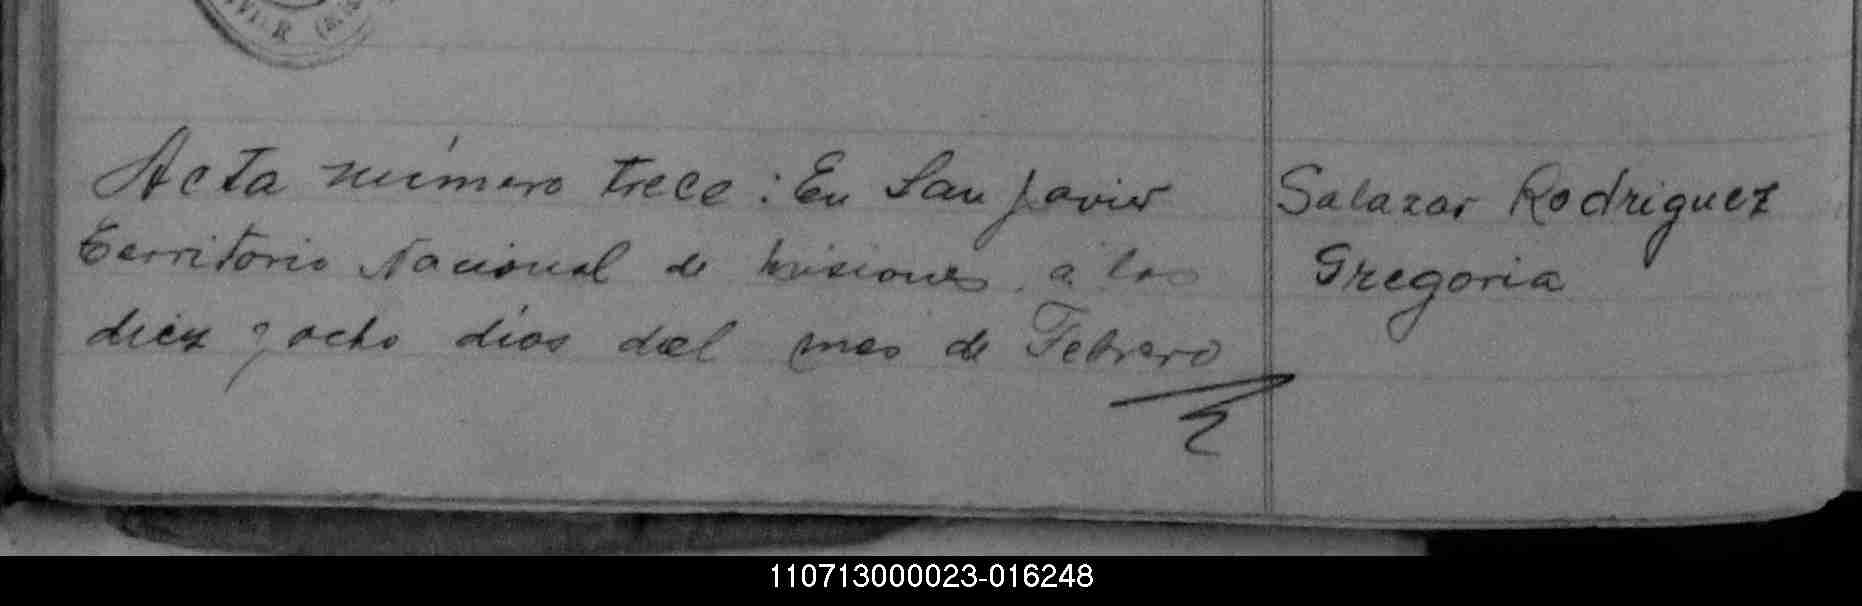 Acta número trece: En San Javier
Territorio Nacional de Misiones, a los
diez y ocho dias del mes de Febrero
Salazar Rodriguez
Gregoria
110713000023-016248